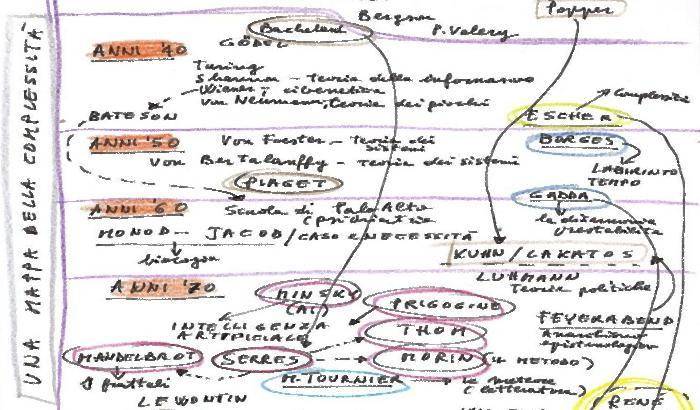 UNA MAPPA DELLA COMPLESSITÀ
Bachelard
Bergson
P. Valery
Popper
ANNI '40
GÖDEL
Turing
Shannon - Teoria della informazione
Wiener, cibernetica
Von Neumann, teoria dei giochi
BATESON
ESCHER
Complessità
ANNI '50
Von Foerster - Teoria dei sistemi
Von Bertalanffy - Teoria dei sistemi
PIAGET
BORGES
LABIRINTO
TEMPO
ANNI '60
Scuola di Palo Alto
(psichiatria
GADDA
la disarmonia
prestabilita
MONOD - JACOB / CASO E NECESSITÀ
biologia
KUHN / LAKATOS
LUHMANN
Teorie politiche
ANNI '70
MINSKY
(AI)
INTELLIGENZA
ARTIFICIALE
PRIGOGINE
THOM
FEYERABEND
Anarchismo
epistemologico
MANDELBROT
SERRES
MORIN (IL METODO)
frattali
M. TOURNIER
le meteore
(letteratura)
LEWONTIN
RENÉ